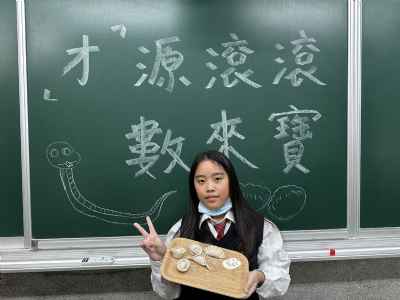 「才」源滾滾
數來寶